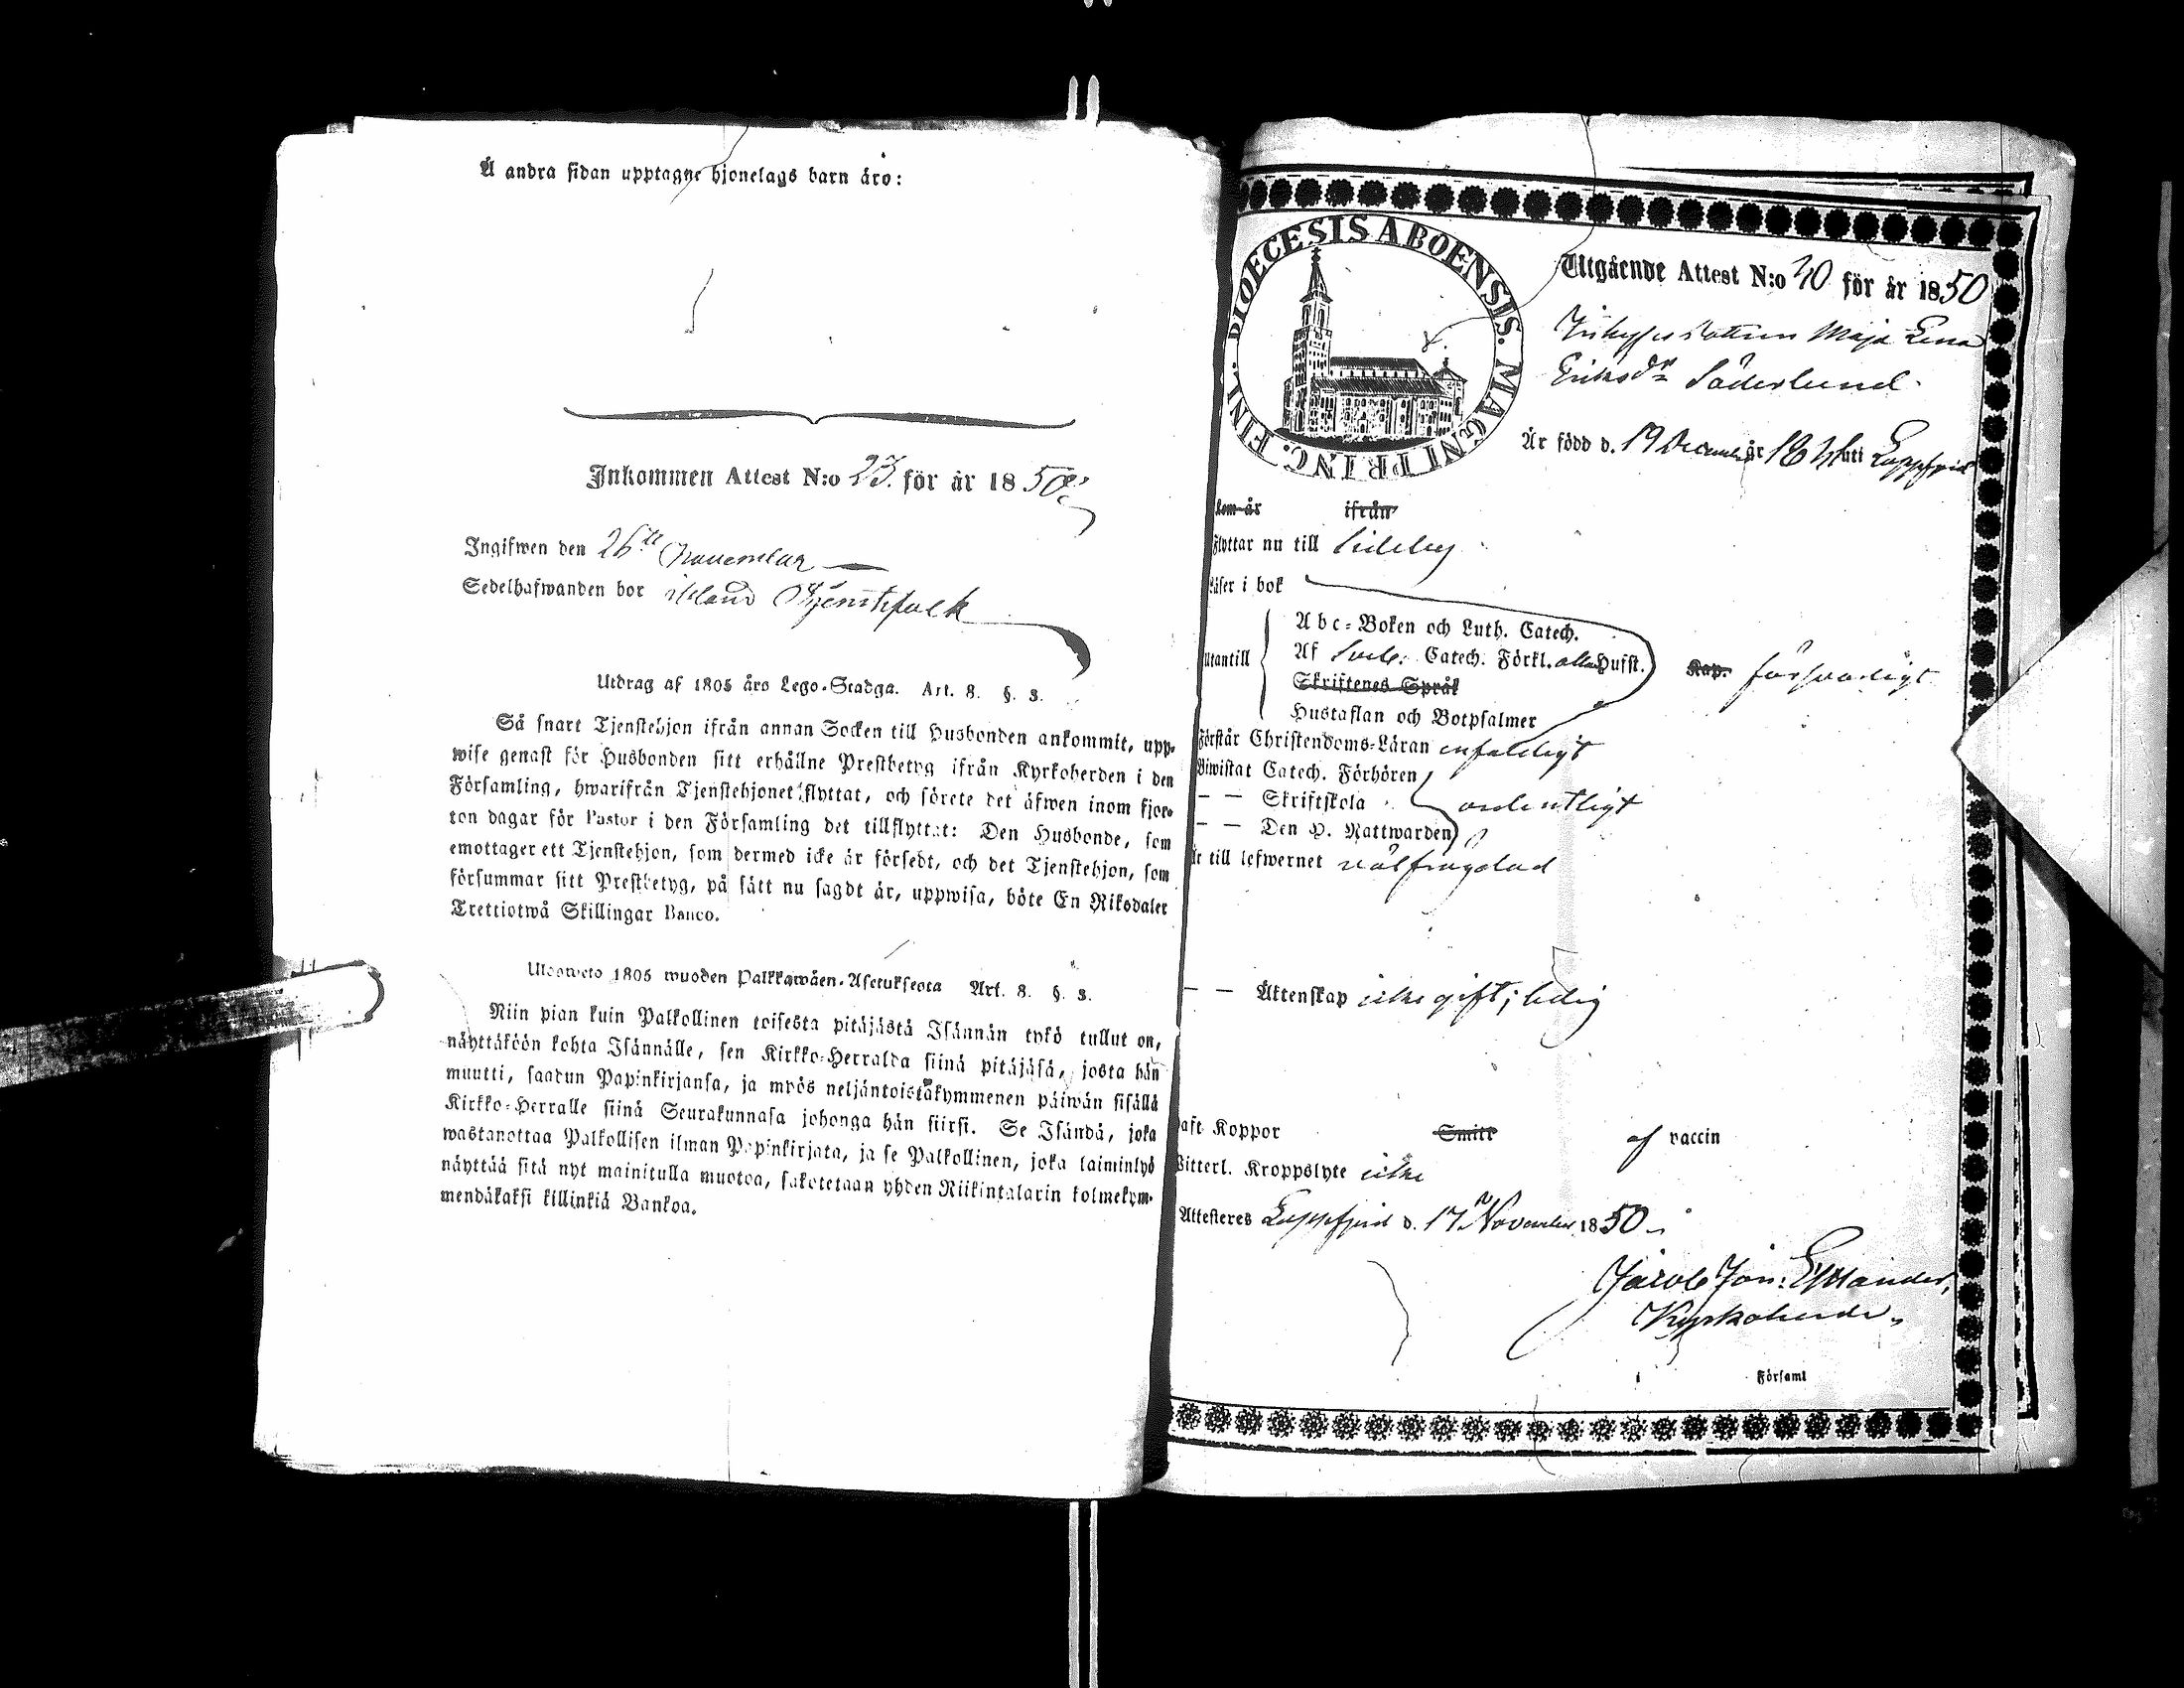 Å andra sidan upptagne hjonelags barn äro:
Inkommen Attest N:o 23. för år 1850
Ingifwen den 26te November
Sedelhafwanden bor ibland Tjenstfolk
Utdrag af 1805 års Lego-Stadga. Art. 8. §. 3.
Så snart Tjenstehjon ifrån annan Socken till Husbonden ankommit, upp-
wise genast för Husbonden sitt erhållne Prestbetyg ifrån Kyrkoherden i den
Församling, hwarifrån Tjenstehjonet flyttat, och förete det äfwen inom fjor-
ton dagar för Pastor i den Församling det tillflyttat: Den Husbonde, som
emottager ett Tjenstehjon, som dermed icke är försedt, och det Tjenstehjon, som
försummar sitt Prestbetyg, på sätt nu sagdt är, uppwisa, böte En Riksdaler
Trettiotwå Skillingar Banco.
Ulosweto 1805 wuoden Palkkawäen-Asetuksesta Art. 8. §. 3.
Niin pian kuin Palkollinen toisesta pitäjästä Isännän tykö tullut on,
näyttäköön kohta Isännälle, sen Kirkko-Herralda siinä pitäjäsä, josta hän
muutti, saadun Papinkirjansa, ja myös neljäntoistakymmenen päiwän sisällä
Kirkko-Herralle siinä Seurakunnasa johonga hän siirsi. Se Isändä, joka
wastanottaa Palkollisen ilman Papinkirjata, ja se Palkollinen, joka laiminlyö
näyttää sitä nyt mainitulla muotoa, sakotetaan yhden Riikintalarin kolmekym-
mendäkaksi killinkiä Bankoa.
DIOECESIS ABOENSIS. MAGNI PRINC. FINL.
Utgående Attest N:o 40 för år 1850
Maja Lena
Eriksdr Söderlund
Är född d. 19 December år uti Lappfjerd
kom år ifrån
Flyttar nu till Sideby
Läser i bok
utantill
Abc-Boken och Luth. Catech.
Af Sveb. Catech. Förkl. alla Hufst.
Kap. försvarligt
Skriftenes Språk
Hustaflan och Botpsalmer
Förstår Christendoms-Läran enfaldigt
Biwistat Catech. Förhören
— — Skriftskola ordentligt
— — Den H. Nattwarden
Är till lefwernet välfrägdad
— — Äktenskap icke gift; ledig
Haft Koppor Smitt af vaccin
Witterl. Kroppslyte icke
Attesteres Lappfjerd d. 17 November 1850
Jacob Jon: Estlander,
Kyrkoherde.
i Församl